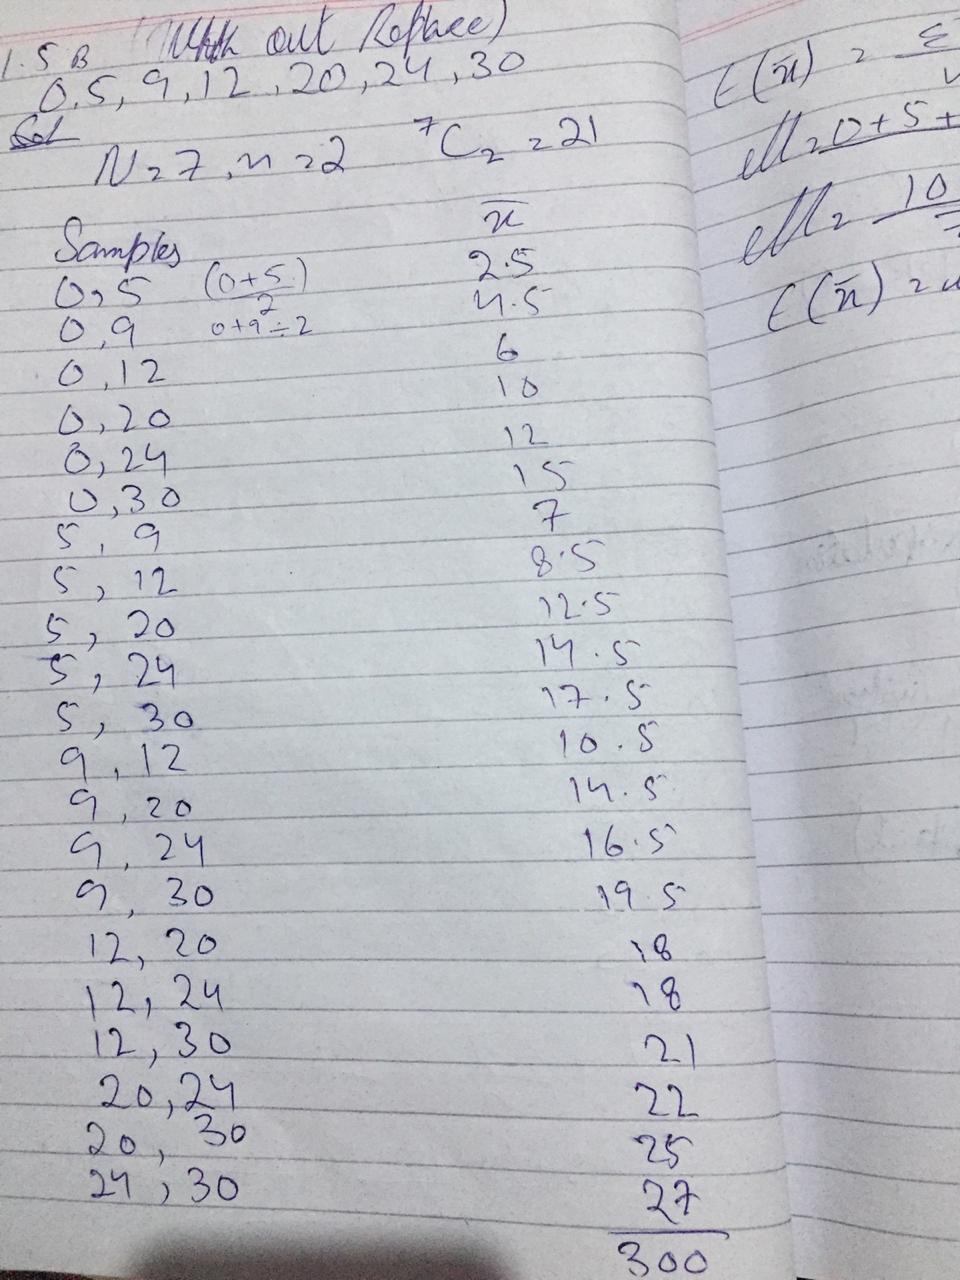 1.5 B (With out Replace)
0,5, 9,12, 20,24,30
Sol
N=7, n=2 ⁷C₂ = 21
Samples x̄
0,5 (0+5)/2 2.5
0,9 0+9÷2 4.5
0,12 6
0,20 10
0,24 12
0,30 15
5, 9 7
5, 12 8.5
5, 20 12.5
5, 24 14.5
5, 30 17.5
9, 12 10.5
9, 20 14.5
9, 24 16.5
9, 30 19.5
12, 20 18
12, 24 18
12, 30 21
20,24 22
20, 30 25
24, 30 27
300
E(x̄) = Σ
M=0+5+
M= 10
E(x̄) = M